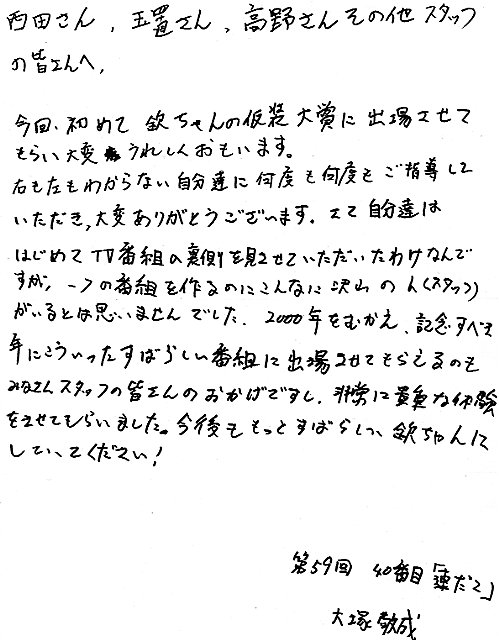 西田さん、玉置さん、高野さんその他スタッフ
の皆さんへ、
今回、初めて 欽ちゃんの仮装大賞に出場させて
もらい大変うれしくおもいます。
右も左もわからない自分達に何度も何度もご指導して
いただき、大変ありがとうございます。さて自分達は
はじめてTV番組の裏側を見させていただいたわけなんで
すが、一つの番組を作るのにこんなに沢山の人(スタッフ)
がいるとは思いませんでした。2000年をむかえ、記念すべき
年にこういったすばらしい番組に出場させてもらえるのも
みなさんスタッフの皆さんのおかげですし、非常に貴重な体験
をさせてもらいました。今後ももっとすばらしい、欽ちゃんに
していってください!
第59回 40番目「連だこ」
大塚敬成